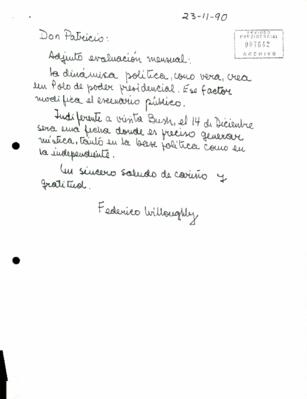 23-11-90
PERIODO
PRESIDENCIAL
007552
ARCHIVO
Don Patricio:
Adjunto evaluación mensual:
La dinámica política, como verá, crea
un Polo de poder presidencial. Ese factor
modifica el escenario público.
Indiferente a visita Bush, el 14 de Diciembre
será una fecha donde es preciso generar
mística, tanto en la base política como en
la independiente.
Un sincero saludo de cariño y
gratitud.
Federico Willoughby